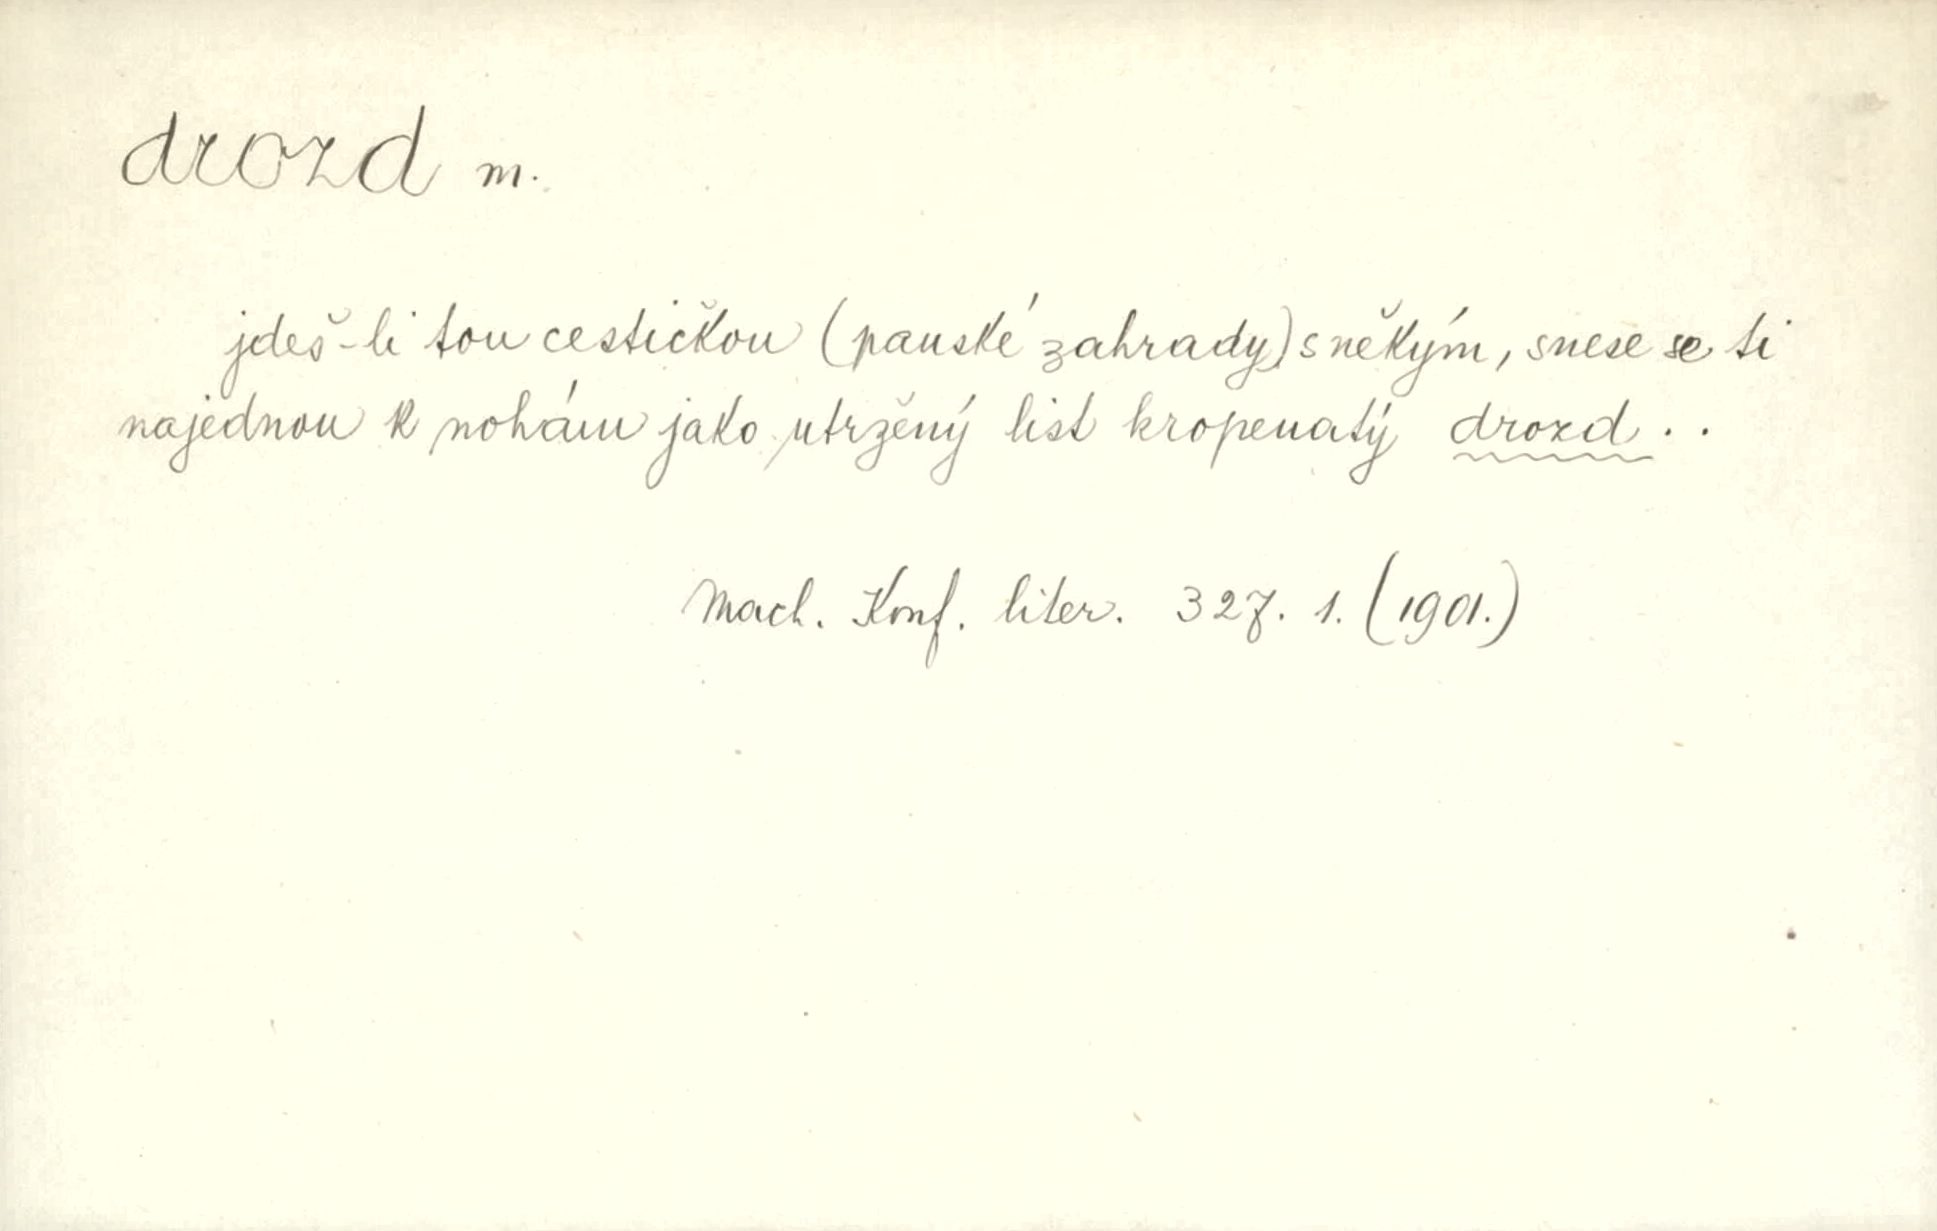 drozd m.
jdeš-li tou cestičkou (panské zahrady) s někým, snese se ti
najednou k nohám jako utržený list kropenatý drozd . .
Mach. Konf. liter. 327. 1. (1901.)